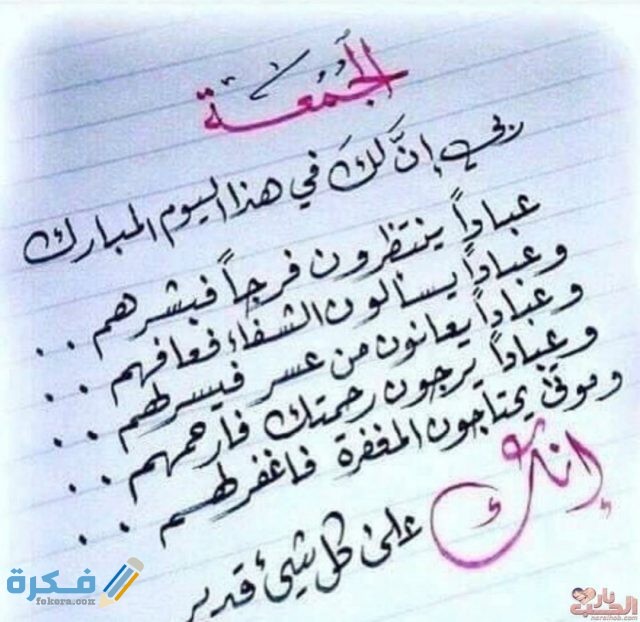 الجُمُعة
ربي إنَّ لكَ في هذا اليوم المبارك
عباداً ينتظرون فرجاً فبشرهم ..
وعباداً يسألون الشفاء فعافهم ..
وعباداً يعانون من عسر فيسرلهم ..
وعباداً يرجون رحمتك فارحمهم ..
وموتى يحتاجون المغفرة فاغفرلهم ..
إنك على كل شيئ قدير
فكرة
fokera.com
نار الحب
narelhob.com